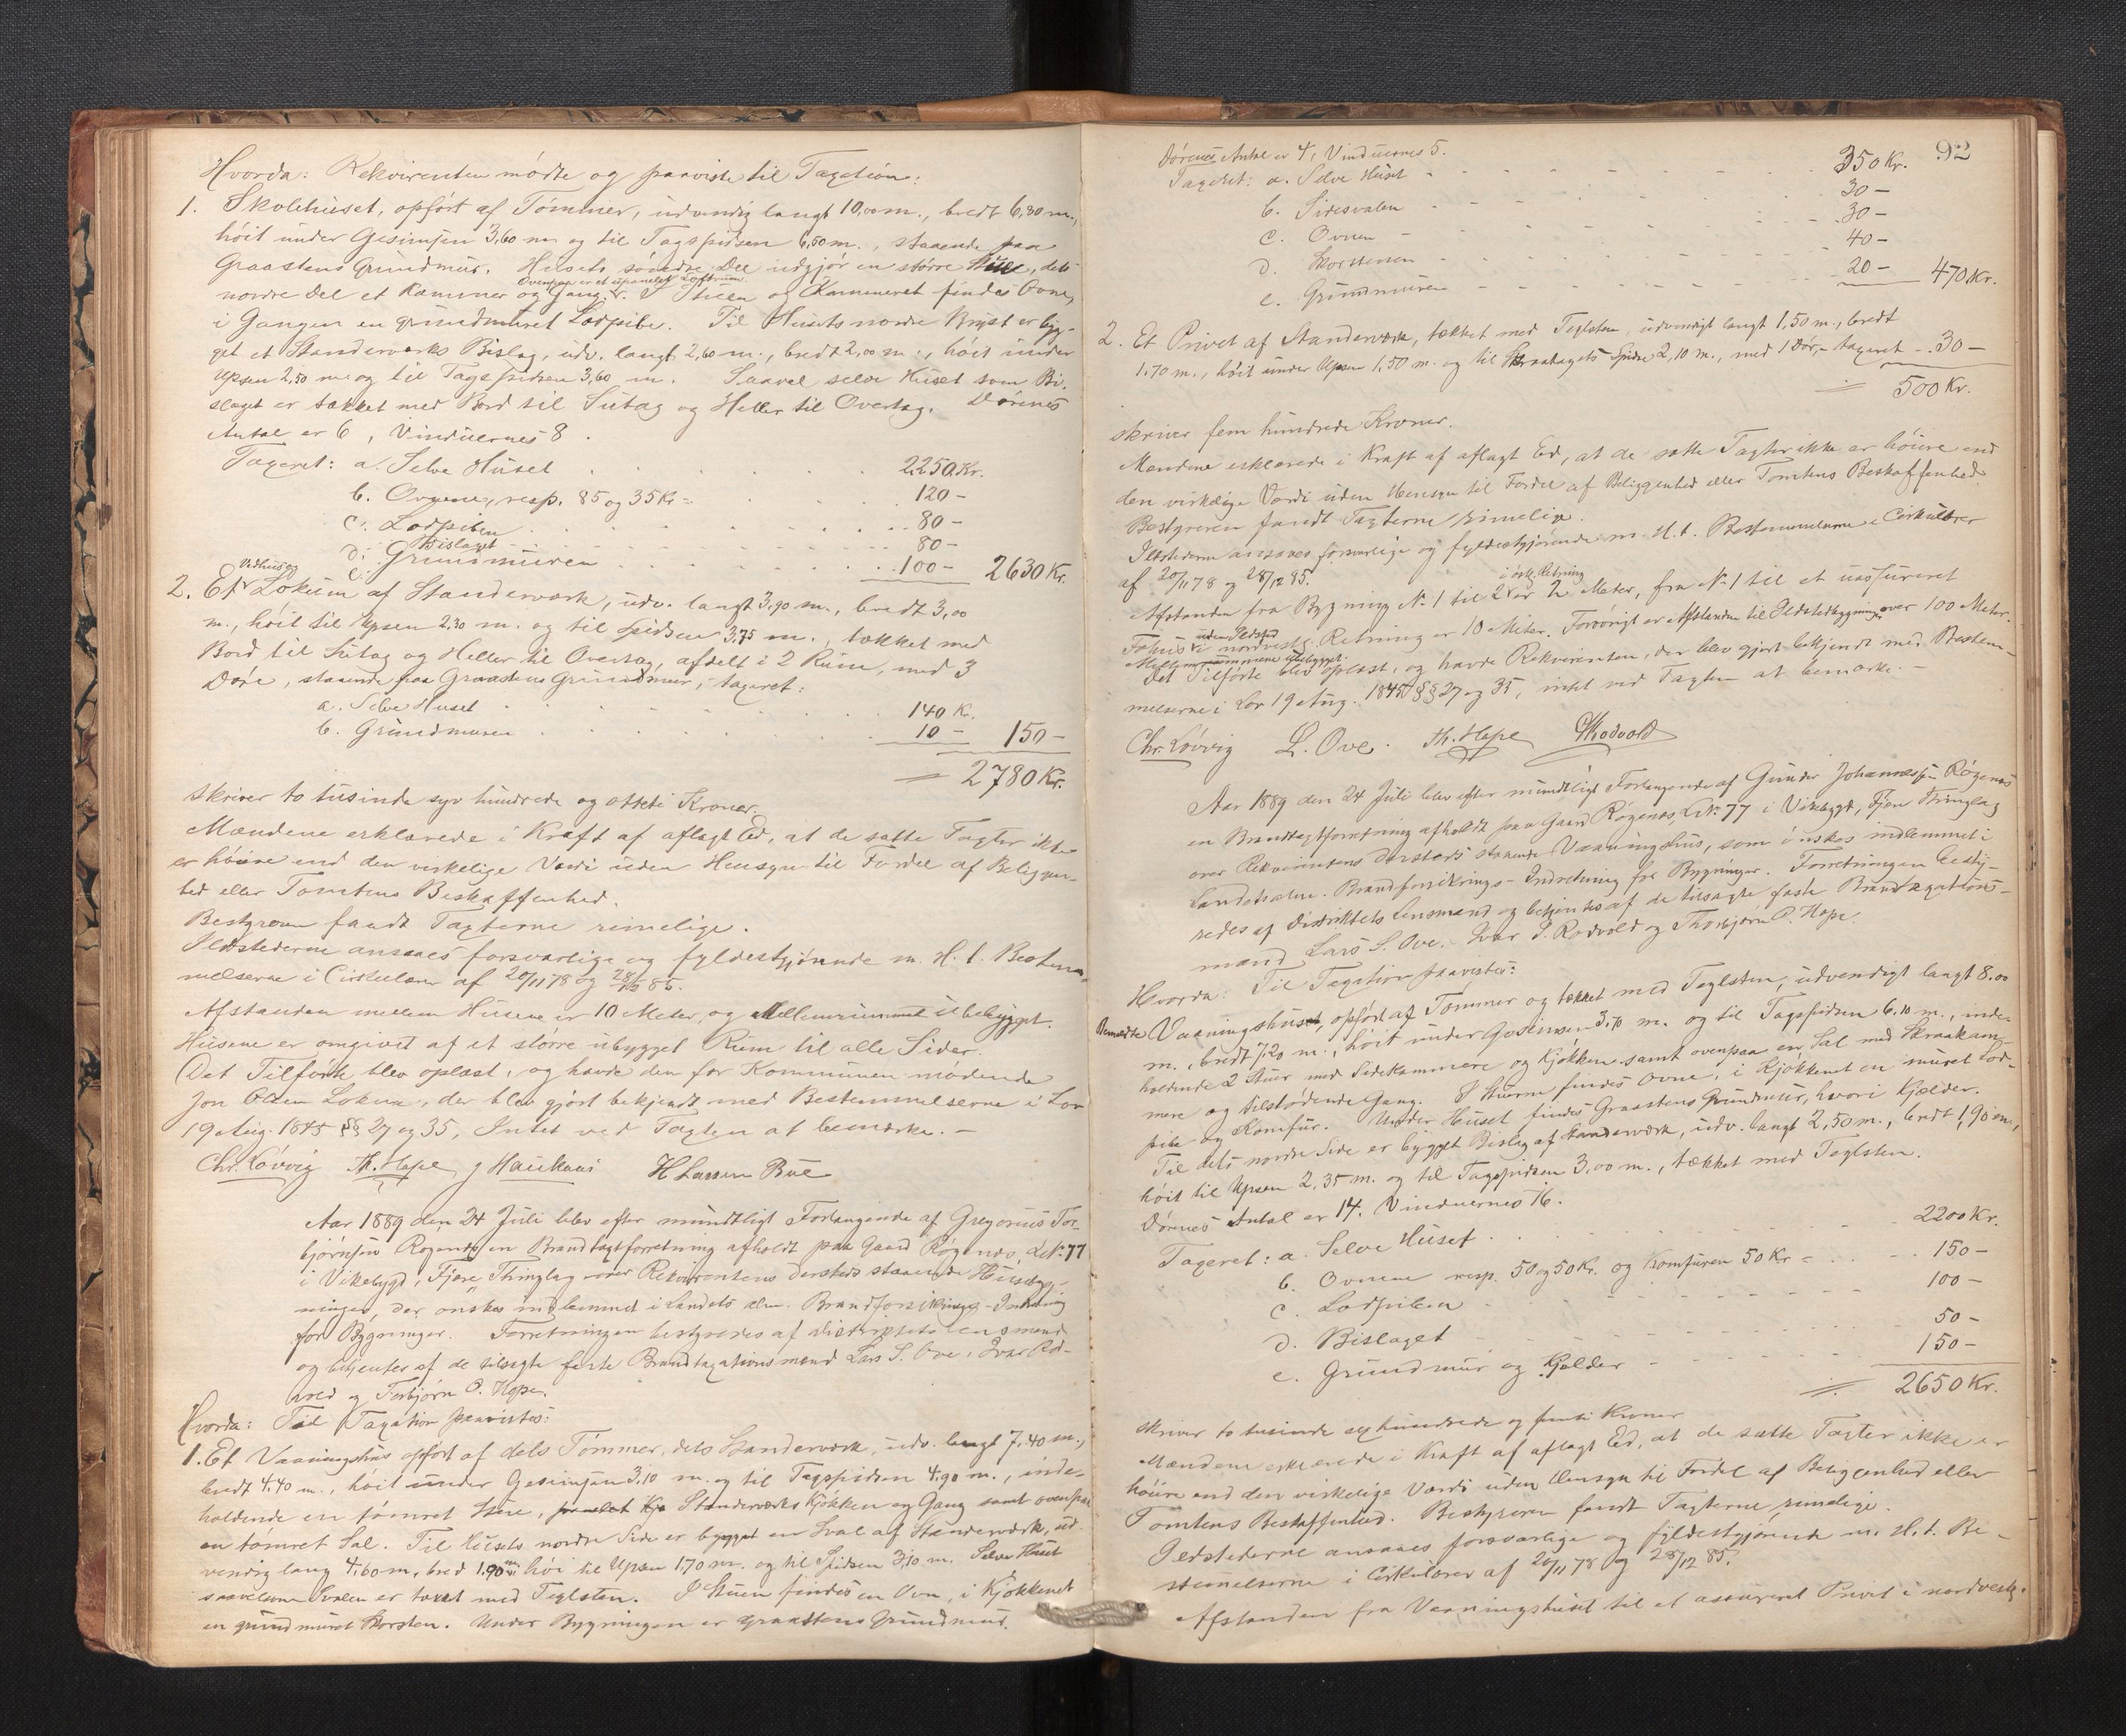 Hvorda: Rekvirenten mödte og paaviste til Taxation:
1. Skolehuset, opfört af Tömmer, udvendig langt 10,00 m., bredt 6,80 m.,
höit under Gesimsen 3,60 m. og til Tagspidsen 6,50 m., staaende paa
Graastens Grundmur. Husets söndre Del udgjör en större Stue, dets
Ovenpaa er et upanelet Loftrum
nordre Del et Kammer og Gang. I Stuen og Kammeret findes Ovne,
i Gangen en grundmuret Lodpibe. Til Husets nordre Bryst er byg-
get et Standerværks Bislag, udv. langt 2,60 m., bredt 2,00 m., höit under
Upsen 2,50 m. og til Tagspidsen 3,60 m. Saavel selve Huset som Bi-
slaget er tækket med Bord til Sutag og Heller til Overtag. Dörenes
Antal er 6, Vinduernes 8.
Taxeret: a. Selve Huset 2250 Kr.
b. Ovnene, resp. 85 og 35 Kr = 120 -
c. Lodpiben 80 -
d. Bislaget 80 -
e. Grundmuren 100 - 2630 Kr.
Vedhus og
2. Et Lokum af Standerværk, udv. langt 3,90 m., bredt 3,00
m., höit til Upsen 2,30 m. og til Spidsen 3,75 m., tækket med
Bord til Sutag og Heller til Overtag, afdelt i 2 Rum, med 3
Döre, staaende paa Graastens Grundmur, taxeret:
a. Selve Huset 140 Kr.
b. Grundmuren 10 - 150 -
= 2780 Kr.
skriver to tusinde syv hundrede og otteti Kroner.
Mændene erklærede i Kraft af aflagt Ed, at de satte Taxter ikke
er höiere end den virkelige Værdi uden Hensyn til Fordel af Beliggen-
hed eller Tomtens Beskaffenhed.
Bestyreren fandt Taxterne rimelige.
Ildstederne ansaaes forsvarlige og fyldestgjörende m. H. t. Bestem-
melserne i Cirkulærer af 20/11 78 og 28/12 85.
Afstanden mellem Husene er 10 Meter, og Mellemrummet ubebygget.
Husene er omgivet af et större ubygget Rum til alle Sider.
Det Tilförte blev oplæst, og havde den for Kommunen mödende
Jon Olsen Lokna, der blev gjort bekjendt med Bestemmelserne i Lov
19 Aug. 1845 §§ 27 og 35, Intet ved Taxten at bemærke. -
Chr. Lövvig Th. Hope J Haukaas H Larsen Bue
Aar 1889 den 24 Juli blev efter mundtligt Forlangende af Gregorius Tor-
björnsen Rögenes en Brandtaxtforretning afholdt paa Gaard Rögenes, L.No. 77
i Vikebygd, Fjære Thinglag over Rekvirentens dersteds staaende Husbyg-
ninger, der önskes indlemmet i Landets alm. Brandforsikrings-Indretning
for Bygninger. Forretningen bestyredes af Distriktets Lensmand
og betjentes af de tilsagte faste Brandtaxationsmænd Lars S. Ove, Ivar Rod-
vold og Torbjörn O. Hope.
Hvorda: Til Taxation paavistes:
1. Et Vaaningshus opfört af dels Tömmer, dels Standerværk, udv. langt 7,40 m.,
bredt 4,40 m., höit under Gesimsen 3,10 m. og til Tagspidsen 4,90 m., inde-
holdende en tömret Stue, Standerværks Kjökken og Gang samt ovenpaa
en tömret Sal. Til Husets nordre Side er bygget en Sval af Standerværk, ud-
vendig lang 4,60 m, bred 1,90 m höi til Upsen 1,70 m. og til Spidsen 3,10 m. Selve Huset
saavelsom Svalen er tækket med Teglsten. I Stuen findes en Ovn, i Kjökkenet
en grundmuret Skorsten. Under Bygningen er Graastens Grundmur.
92
Dörenes Antal er 4, Vinduernes 5.
Taxeret: a. Selve Huset 350 Kr.
b. Sidesvalen 30 -
c. Ovnen 30 -
d. Skorstenen 40 -
e. Grundmuren 20 - 470 Kr.
2. Et Privet af Standerværk, tækket med Teglsten, udvendigt langt 1,50 m., bredt
1,70 m., höit under Upsen 1,50 m. og til Skraatagets Spidse 2,10 m., med 1 Dör, - taxeret 30 -
= 500 Kr.
skriver fem hundrede Kroner.
Mændene erklærede i Kraft af aflagt Ed, at de satte Taxter ikke er höiere end
den virkelige Værdi uden Hensyn til Fordel af Beliggenhed eller Tomtens Beskaffenhed.
Bestyreren fandt Taxterne rimelige.
Ildstederne ansaaes forsvarlige og fyldestgjörende m. H. t. Bestemmelserne i Cirkulærer
af 20/11 78 og 28/12 85.
i östl. Retning
Afstanden fra Bygning No. 1 til 2 er 2 Meter, fra No. 1 til et uassureret
uden Ildsted
Fæhus i nordvestlig Retning er 10 Meter. Forövrigt er Afstanden til Ildstedbygninger over 100 Meter.
Mellemrummene ubebygget.
Det Tilförte blev oplæst, og havde Rekvirenten, der blev gjort bekjendt med Bestem-
melserne i Lov 19 Aug. 1845 §§ 27 og 35, intet ved Taxten at bemærke. -
Chr. Lövvig L. Ove. Th. Hope Rodvold
Aar 1889 den 24 Juli blev efter mundtligt Forlangende af Gunder Johannessen Rögenes
en Brandtaxtforretning afholdt paa Gaard Rögenes, L.No. 77 i Vikebygd, Fjære Thinglag
over Rekvirentens dersteds staaende Vaaningshus, som önskes indlemmet i
Landets alm. Brandforsikrings-Indretning for Bygninger. Forretningen besty-
redes af Distriktets Lensmand og betjentes af de tilsagte faste Brandtaxations-
mænd Lars S. Ove, Ivar I. Rodvold og Thorbjörn O. Hope.
Hvorda: Til Taxation paavistes:
Bemeldte Vaaningshuset, opfört af Tömmer og tækket med Teglsten, udvendigt langt 8,00
m., bredt 7,20 m., höit under Gesimsen 3,70 m. og til Tagspidsen 6,10 m., inde-
holdende 2 Stuer med Sidekammere og Kjökken samt ovenpaa en Sal med Skraakam-
mere og tilstödende Gang. I Stuerne findes Ovne, i Kjökkenet en muret Lod-
pibe og Komfur. Under Huset findes Graastens Grundmur, hvori Kjælder.
Til dets nordre Side er bygget Bislag af Standerværk, udv. langt 2,50 m., bredt 1,90 m.,
höit til Upsen 2,35 m. og til Tagspidsen 3,00 m., tækket med Teglsten.
Dörenes Antal er 14. Vinduernes 16.
Taxeret: a. Selve Huset 2200 Kr.
b. Ovnene resp. 50 og 50 Kr. og Komfuren 50 Kr = 150 -
c. Lodpiben 100 -
d. Bislaget 50 -
e. Grundmur og Kjælder 150 -
= 2650 Kr.
skriver to tusinde sex hundrede og femti Kroner
Mændene erklærede i Kraft af aflagt Ed, at de satte Taxter ikke er
höiere end den virkelige Værdi uden Hensyn til Fordel af Beliggenhed eller
Tomtens Beskaffenhed. Bestyreren fandt Taxterne rimelige.
Ildstederne ansaaes forsvarlige og fyldestgjörende m. H. t. Be-
stemmelserne i Cirkulærer af 20/11 78 og 28/12 85.
Afstanden fra Vaaningshuset til et assureret Privet i nordvestl.